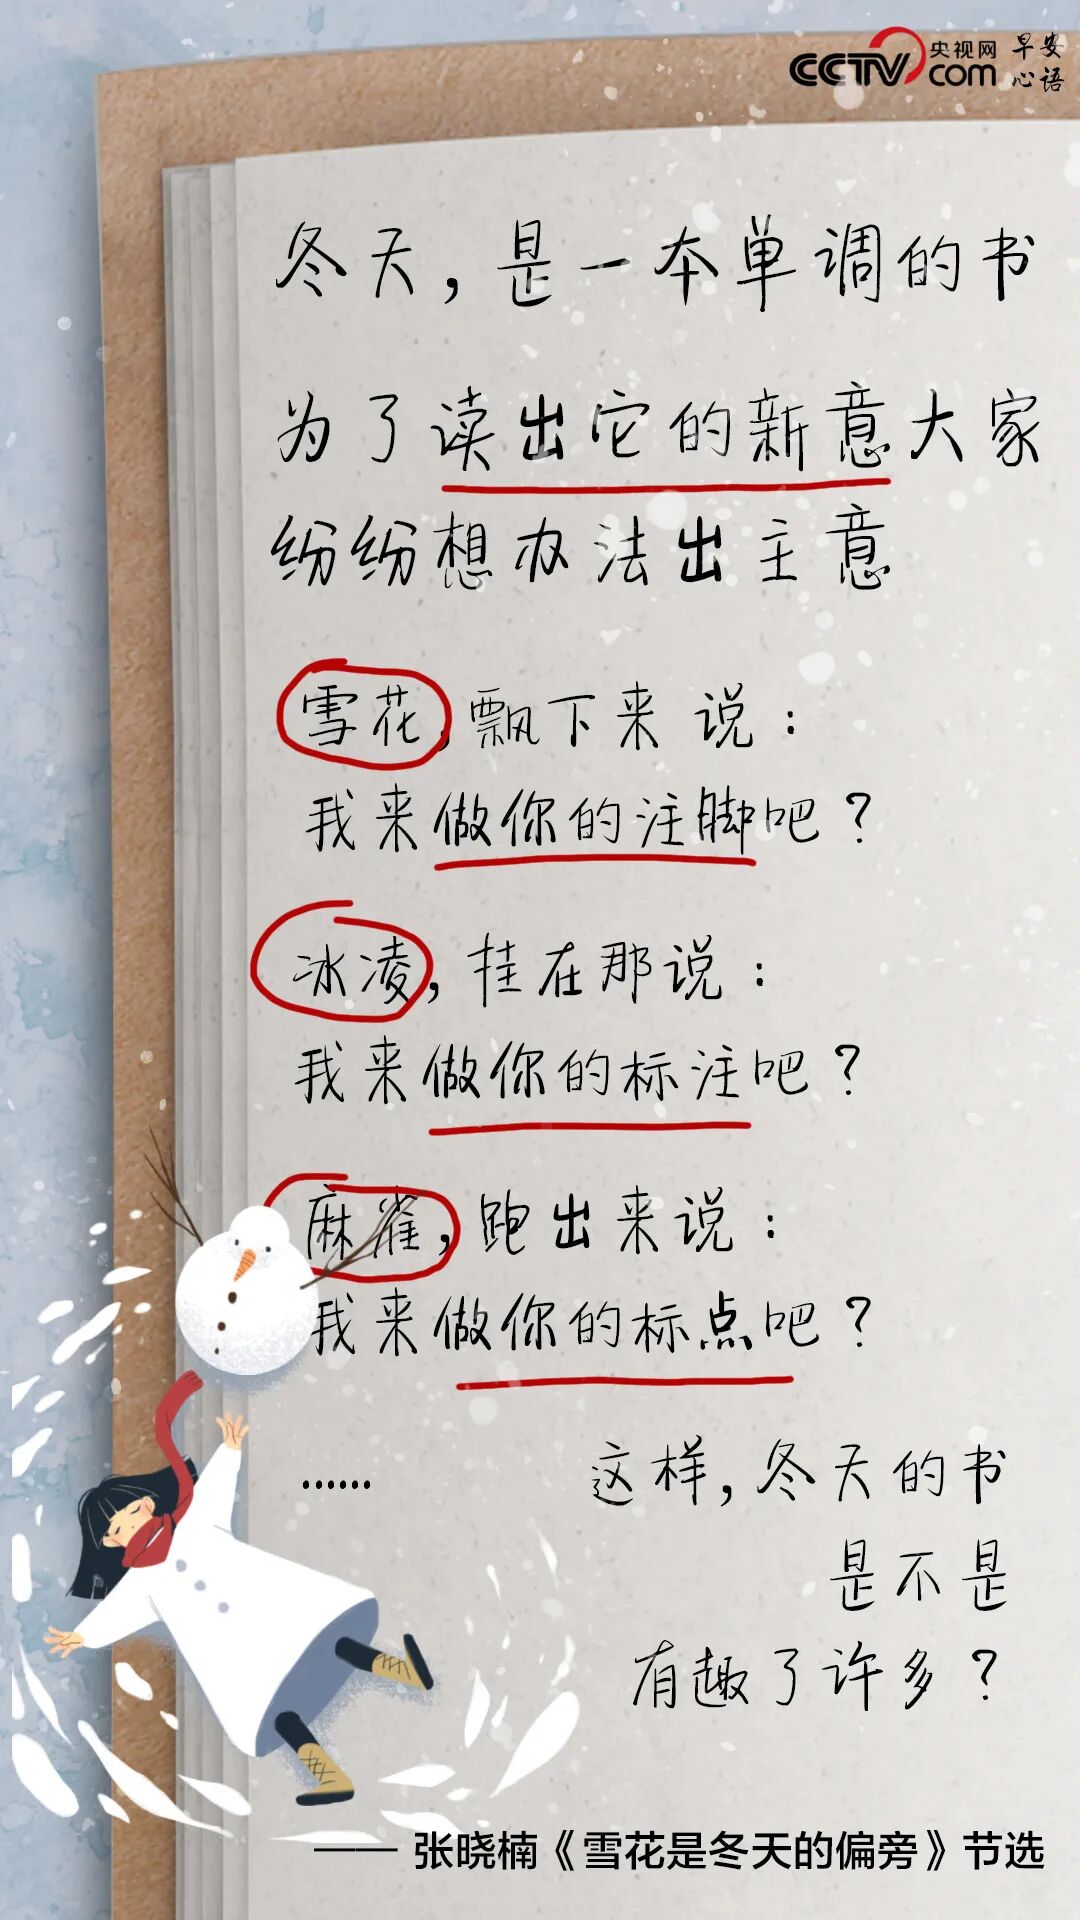 CCTV.com 央视网
早安心语
冬天,是一本单调的书
为了读出它的新意大家
纷纷想办法出主意
雪花,飘下来 说:
我来做你的注脚吧?
冰凌,挂在那说:
我来做你的标注吧?
麻雀,跑出来说:
我来做你的标点吧?
......
这样,冬天的书
是不是
有趣了许多?
—— 张晓楠《雪花是冬天的偏旁》节选